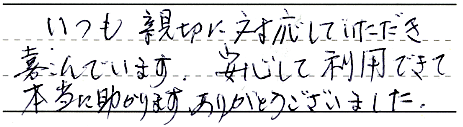 いつも親切に対応していただき
喜んでいます。安心して利用できて
本当に助かります。ありがとうございました。